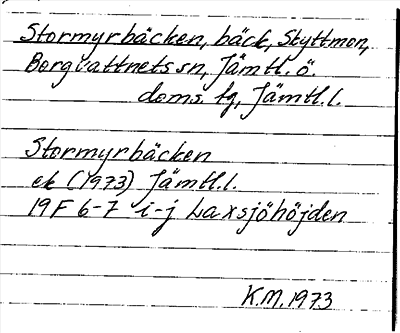 Stormyrbäcken, bäck, Skyttmon,
Borgvattnets sn, Jämtl. ö.
doms. fg, Jämtl. l.
Stormyrbäcken
ek (1973) Jämtl. l.
19F 6-7 i-j Laxsjöhöjden
K.M. 1973